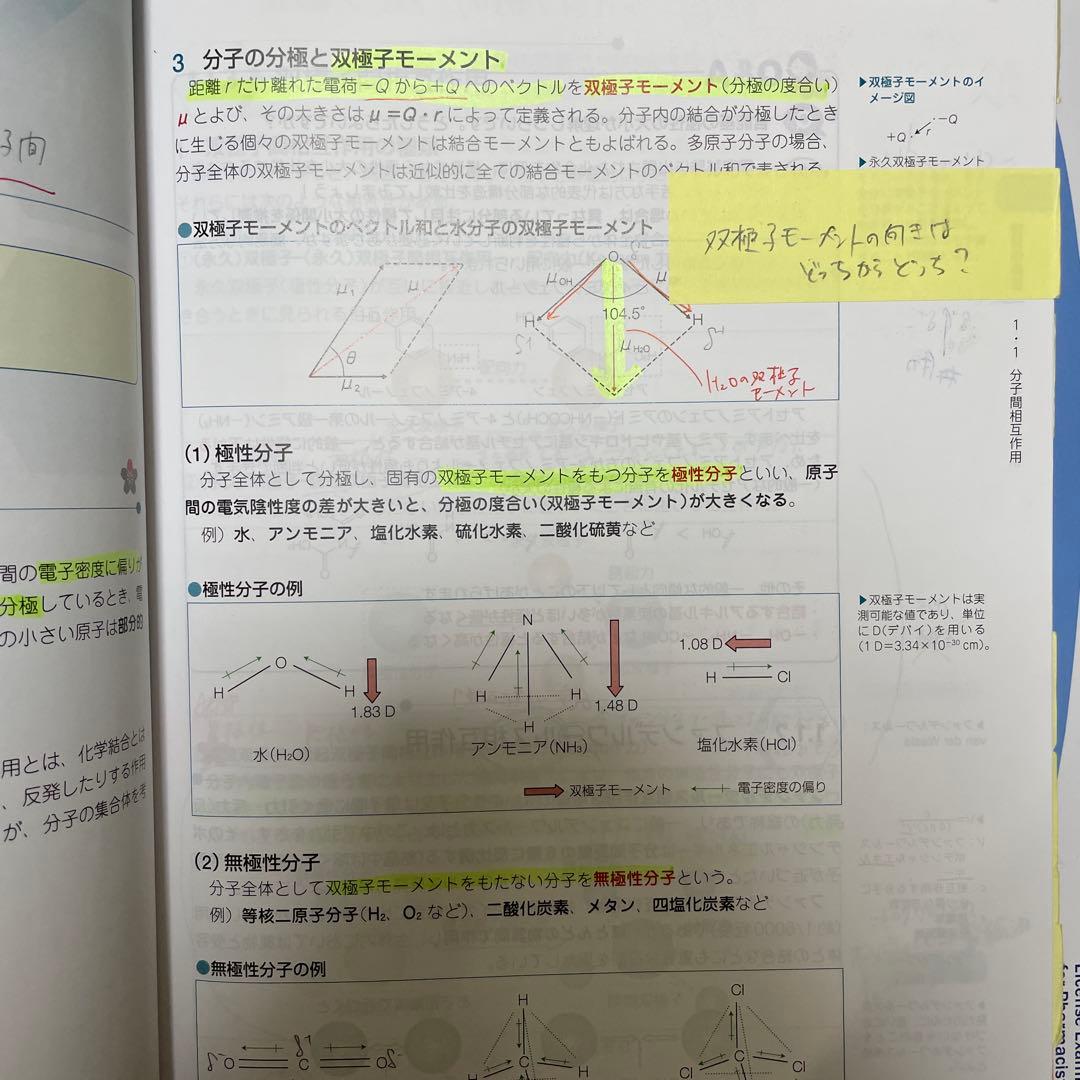 3 分子の分極と双極子モーメント
距離rだけ離れた電荷−Qから+Qへのベクトルを双極子モーメント(分極の度合い)
μとよび、その大きさはμ=Q・rによって定義される。分子内の結合が分極したとき
に生じる個々の双極子モーメントは結合モーメントともよばれる。多原子分子の場合、
分子全体の双極子モーメントは近似的に全ての結合モーメントのベクトル和で表される。
▶双極子モーメントのイ
メージ図
−Q
+Q
r
▶永久双極子モーメント
双極子モーメントの向きは
どっちからどっち?
●双極子モーメントのベクトル和と水分子の双極子モーメント
μ1
θ
μ2
O
μOH
H
104.5°
μH2O
H
δ+
H2Oの双極子
モーメント
1・1 分子間相互作用
(1)極性分子
分子全体として分極し、固有の双極子モーメントをもつ分子を極性分子といい、原子
間の電気陰性度の差が大きいと、分極の度合い(双極子モーメント)が大きくなる。
例)水、アンモニア、塩化水素、硫化水素、二酸化硫黄など
●極性分子の例
O
H
H
1.83 D
水(H2O)
N
H
H
H
1.48 D
アンモニア(NH3)
1.08 D
H
Cl
塩化水素(HCl)
双極子モーメント
電子密度の偏り
▶双極子モーメントは実
測可能な値であり、単位
にD(デバイ)を用いる
(1 D=3.34×10⁻³⁰ cm)。
(2)無極性分子
分子全体として双極子モーメントをもたない分子を無極性分子という。
例)等核二原子分子(H2、O2など)、二酸化炭素、メタン、四塩化炭素など
●無極性分子の例
δ-O
C
δ+
Oδ-
H
C
H
H
Cl
C
Cl
Cl
子間
間の電子密度に偏りが
分極しているとき、電
の小さい原子は部分的
用とは、化学結合とは
、反発したりする作用
が、分子の集合体を考